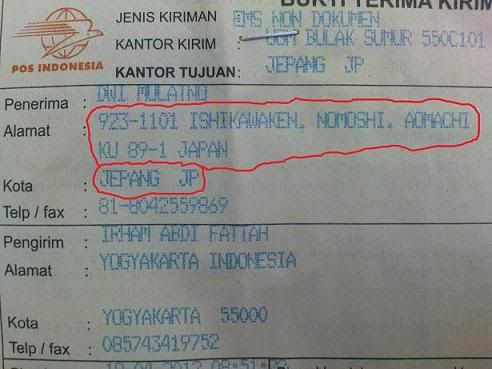 BUKTI TERIMA KIRIM
JENIS KIRIMAN EMS NON DOKUMEN
KANTOR KIRIM : UGM BULAK SUMUR 550C101
POS INDONESIA
KANTOR TUJUAN : JEPANG JP
Penerima : DWI MULATNO
Alamat : 923-1101 ISHIKAWAKEN, NOMOSHI. AOMACHI
KU 89-1 JAPAN
Kota : JEPANG JP
Telp / fax : 81-8042559869
Pengirim : IRHAM ABDI FATTAH
Alamat : YOGYAKARTA INDONESIA
Kota : YOGYAKARTA 55000
Telp / fax : 085743419752